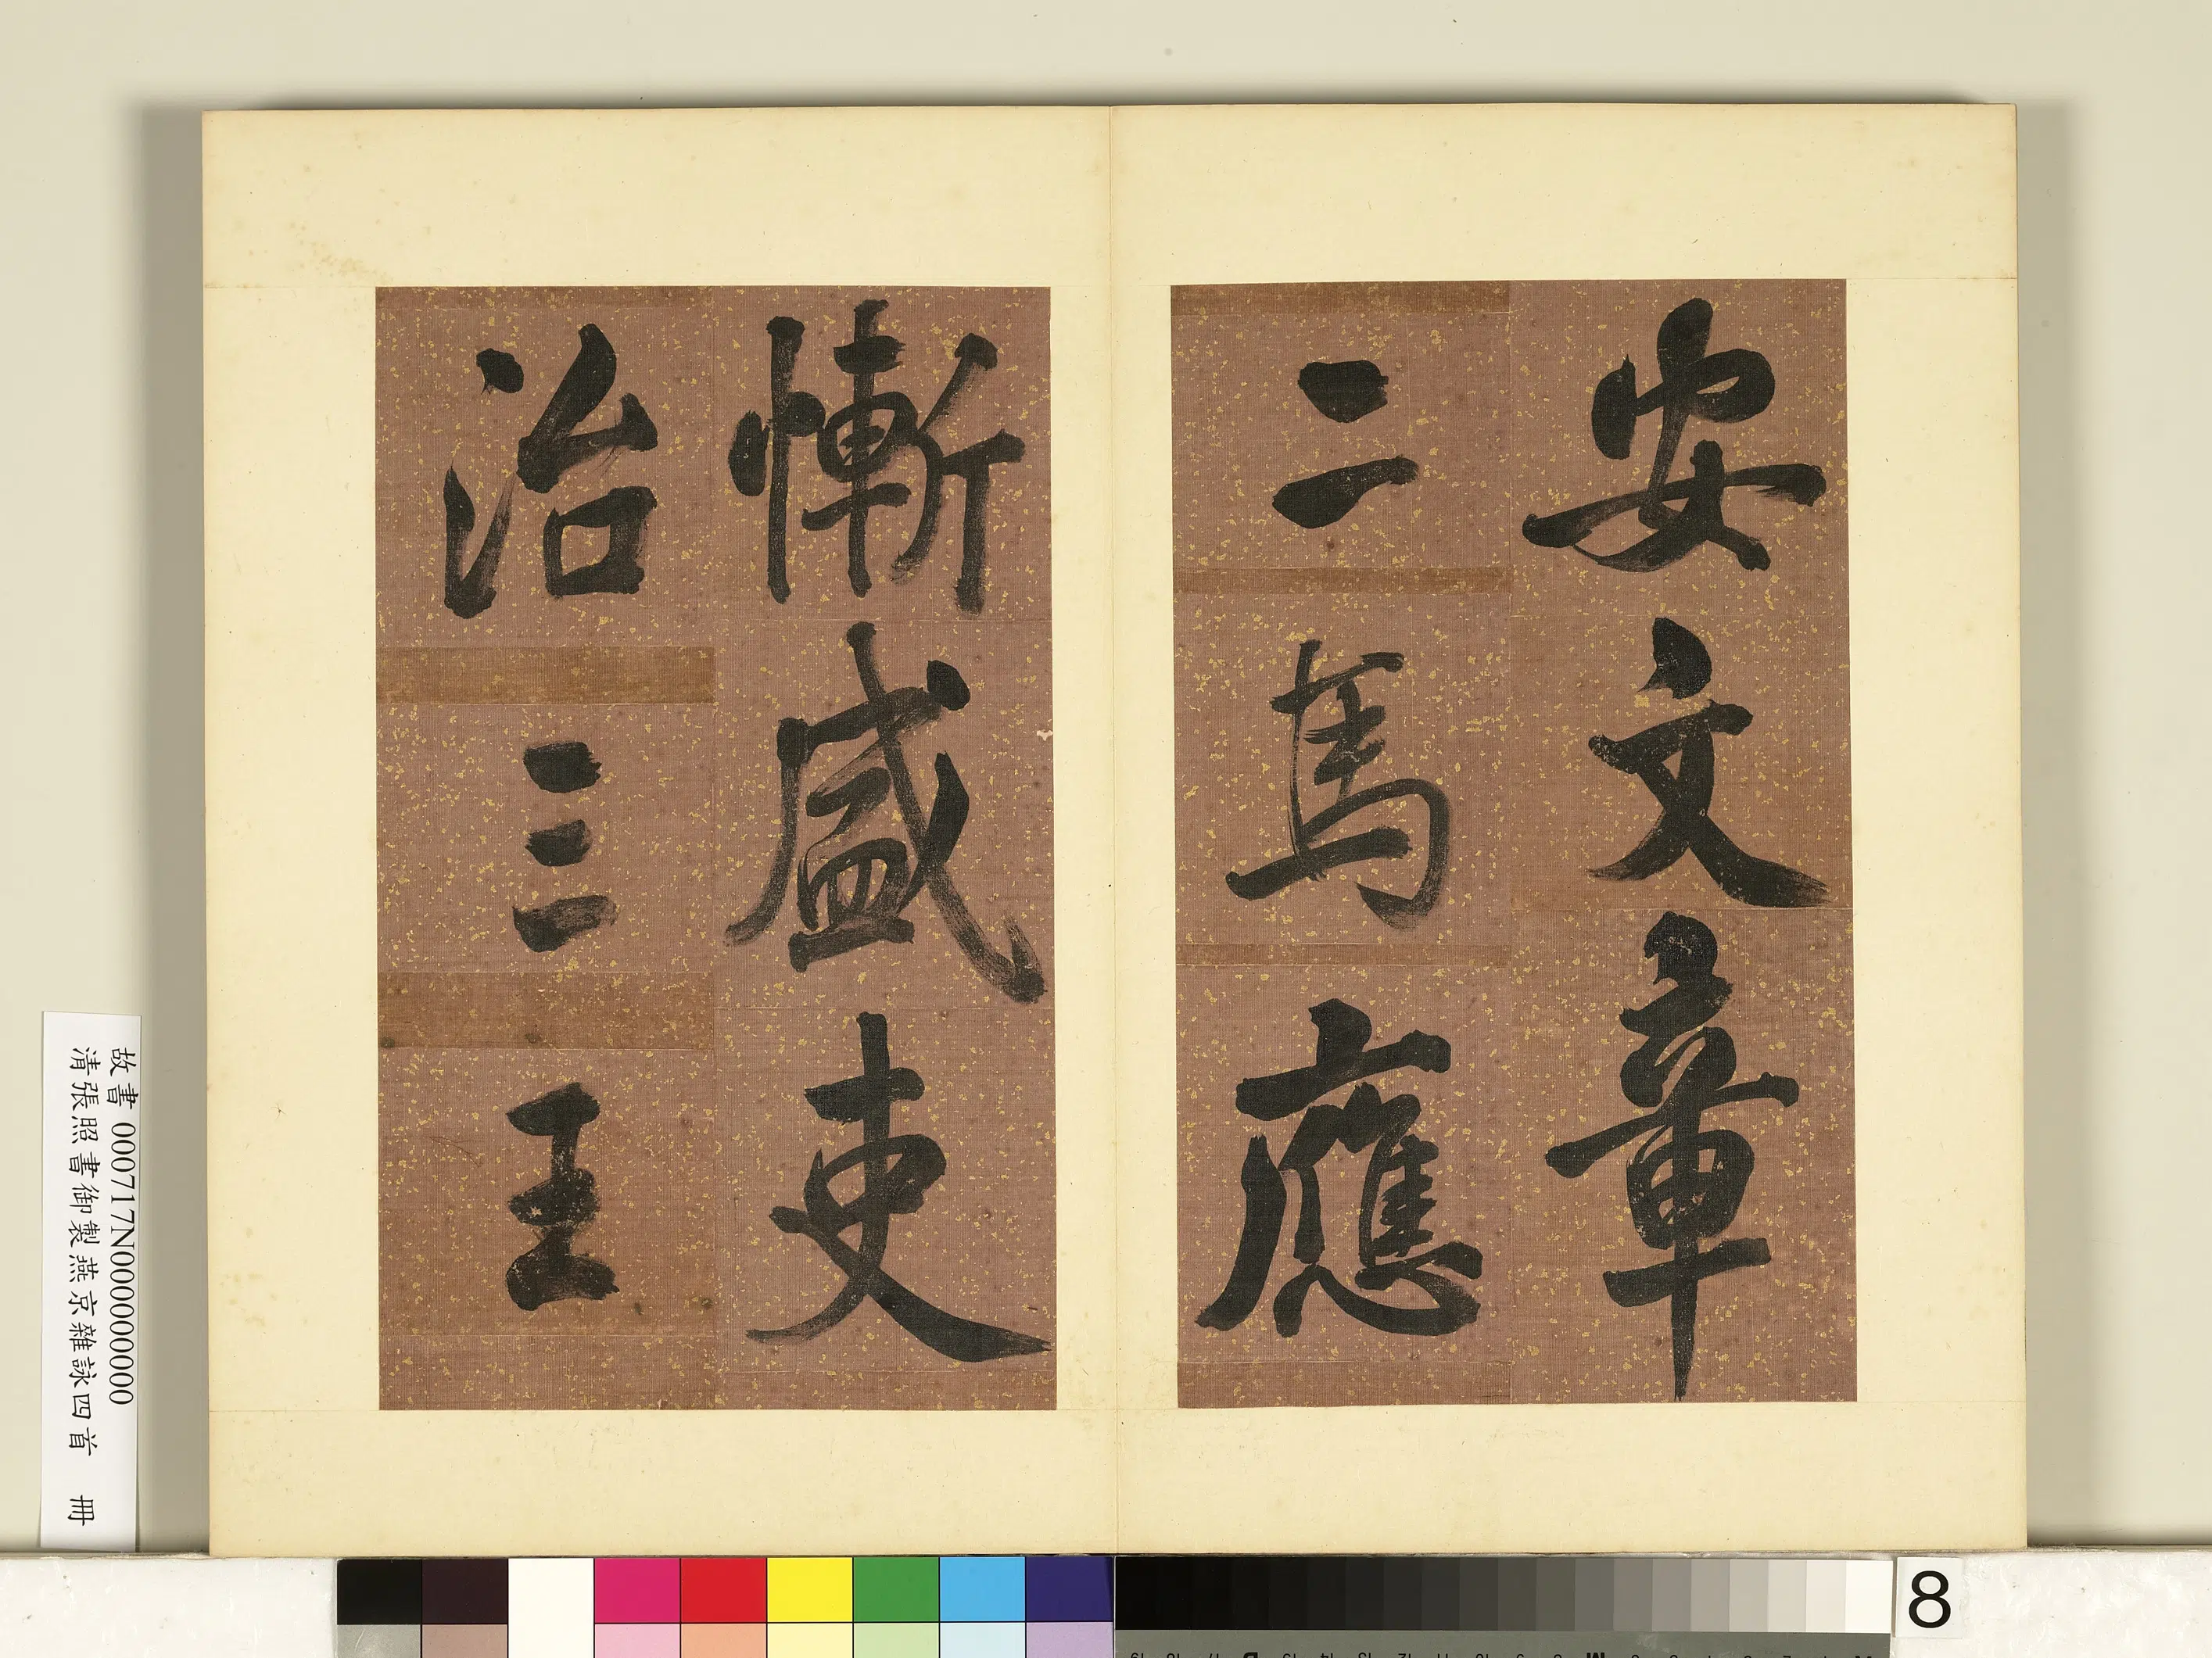 安文章
二馬應
慚盛吏
治三王
故書 000717N000000000
清張照書御製燕京雜詠四首 冊
8